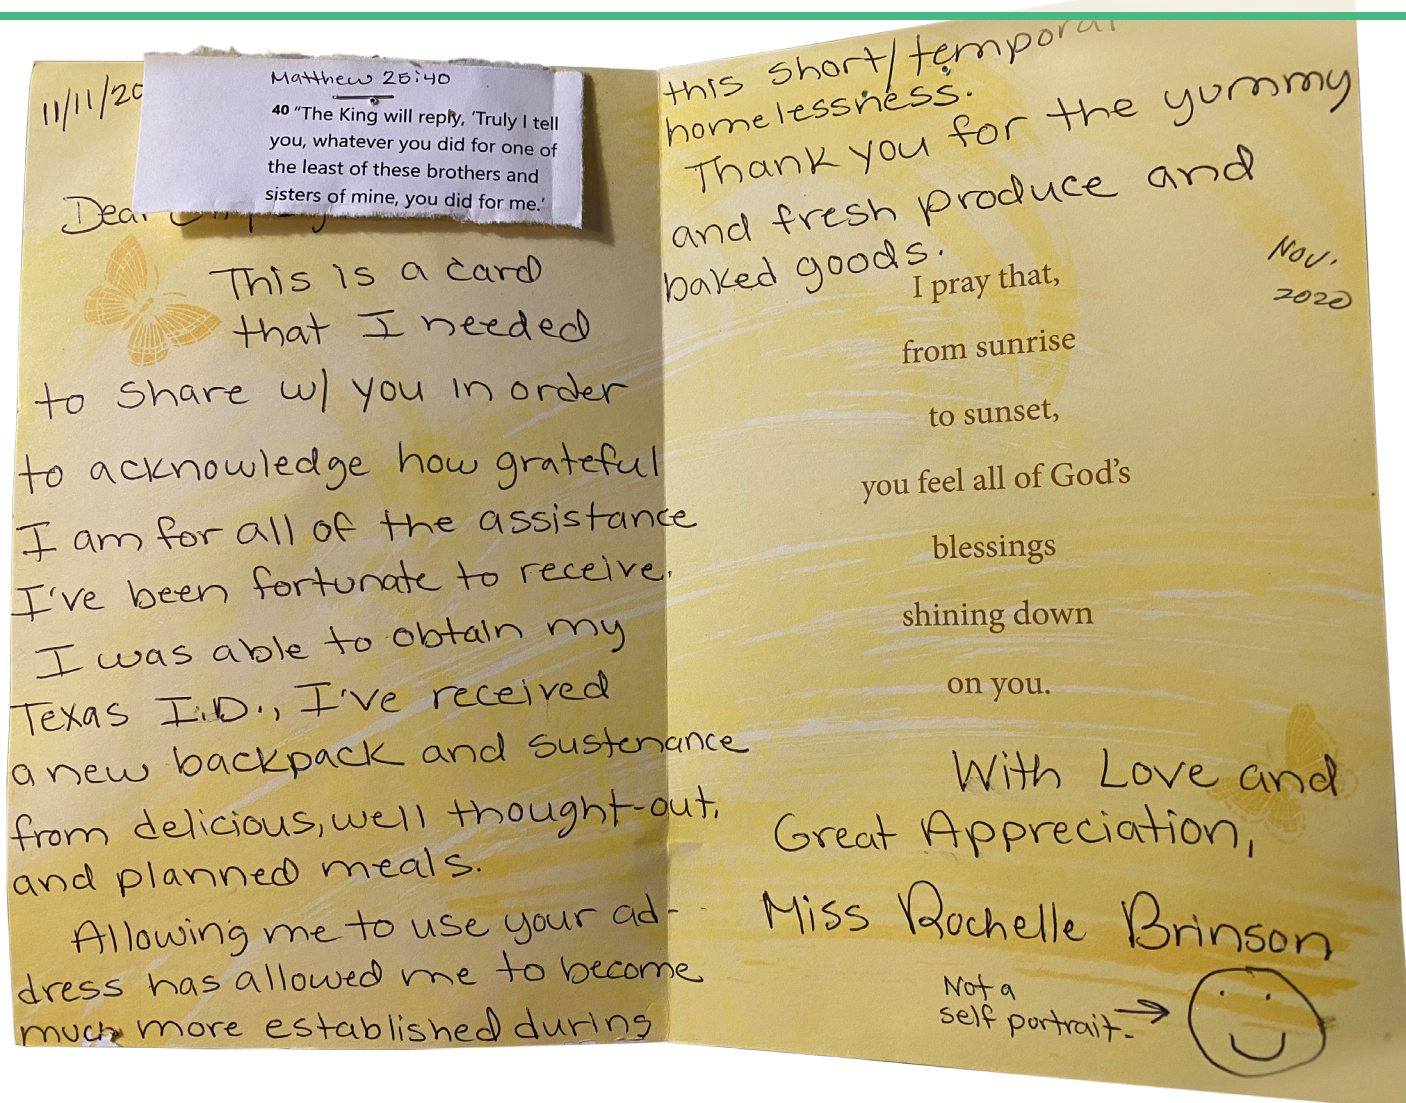 11/11/20
Matthew 25:40
40 “The King will reply, ‘Truly I tell
you, whatever you did for one of
the least of these brothers and
sisters of mine, you did for me.’
Dear
This is a card
that I needed
to share w/ you in order
to acknowledge how grateful
I am for all of the assistance
I've been fortunate to receive.
I was able to obtain my
Texas I.D., I've received
a new backpack and sustenance
from delicious, well thought-out,
and planned meals.
Allowing me to use your ad-
dress has allowed me to become
much more established during
this short/temporal
homelessness.
Thank you for the yummy
and fresh produce and
baked goods.
Nov.
2020
I pray that,
from sunrise
to sunset,
you feel all of God’s
blessings
shining down
on you.
With Love and
Great Appreciation,
Miss Rochelle Brinson
Not a
self portrait.